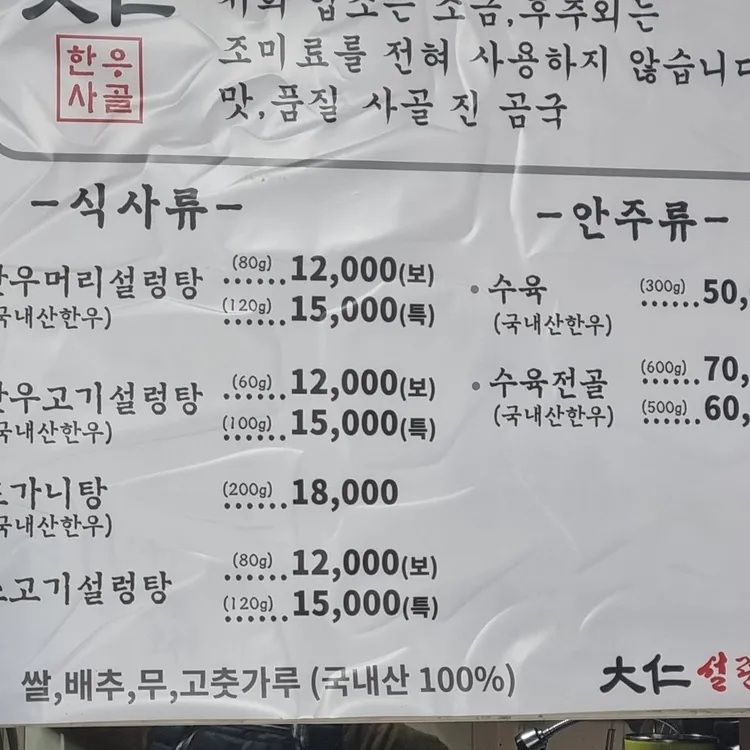 大仁
한우
사골
저희 업소는 소금,후추외는
조미료를 전혀 사용하지 않습니다
맛,품질 사골 진 곰국
-식사류-
한우머리설렁탕 (80g) 12,000(보)
(국내산한우) (120g) 15,000(특)
한우고기설렁탕 (60g) 12,000(보)
(국내산한우) (100g) 15,000(특)
도가니탕 (200g) 18,000
(국내산한우)
소고기설렁탕 (80g) 12,000(보)
(120g) 15,000(특)
-안주류-
• 수육 (300g) 50,
(국내산한우)
• 수육전골 (600g) 70,
(국내산한우) (500g) 60,
쌀,배추,무,고춧가루 (국내산 100%)
大仁 설렁